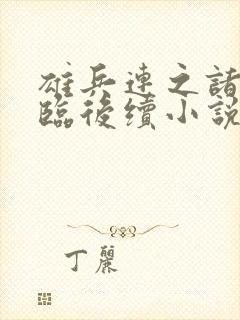 雄兵連之諸
臨後續小說
丁麗